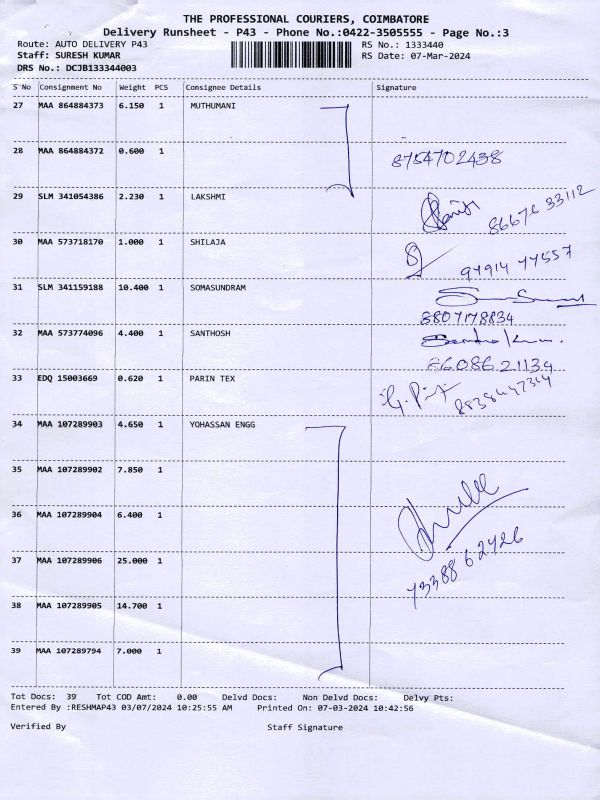 THE PROFESSIONAL COURIERS, COIMBATORE
Delivery Runsheet - P43 - Phone No.:0422-3505555 - Page No.:3
Route: AUTO DELIVERY P43 RS No.: 1333440
Staff: SURESH KUMAR RS Date: 07-Mar-2024
DRS No.: DCJB133344003
S No Consignment No Weight PCS Consignee Details Signature
27 MAA 864884373 6.150 1 MUTHUMANI
28 MAA 864884372 0.600 1 8754702438
29 SLM 341054386 2.230 1 LAKSHMI 86676 33112
30 MAA 573718170 1.000 1 SHILAJA
31 SLM 341159188 10.400 1 SOMASUNDRAM
8807178834
32 MAA 573774096 4.400 1 SANTHOSH
86086 21134
33 EDQ 15003669 0.620 1 PARIN TEX
34 MAA 107289903 4.650 1 YOHASSAN ENGG
35 MAA 107289902 7.850 1
36 MAA 107289904 6.400 1
37 MAA 107289906 25.000 1 73388 62426
38 MAA 107289905 14.700 1
39 MAA 107289794 7.000 1
Tot Docs: 39 Tot COD Amt: 0.00 Delvd Docs: Non Delvd Docs: Delvy Pts:
Entered By :RESHMAP43 03/07/2024 10:25:55 AM Printed On: 07-03-2024 10:42:56
Verified By Staff Signature